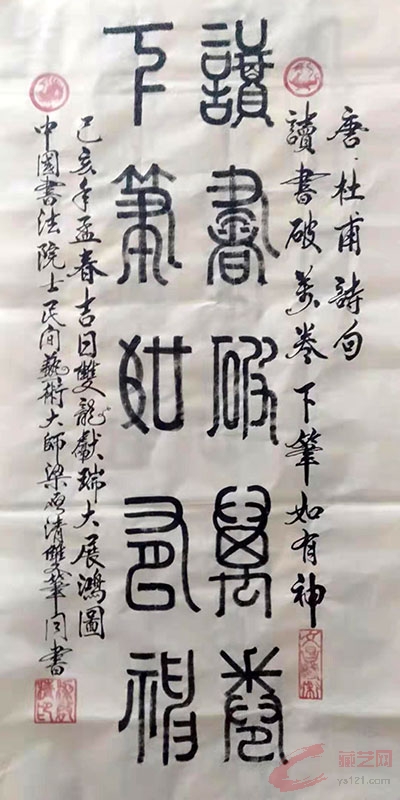 唐·杜甫诗句
讀書破萬卷下筆如有神
讀書破萬卷
下筆如有神
己亥年孟春吉日雙龍獻瑞大展鴻圖
中國書法院士民间藝術大師梁 清雙筆同書
藏艺网
ys121.com